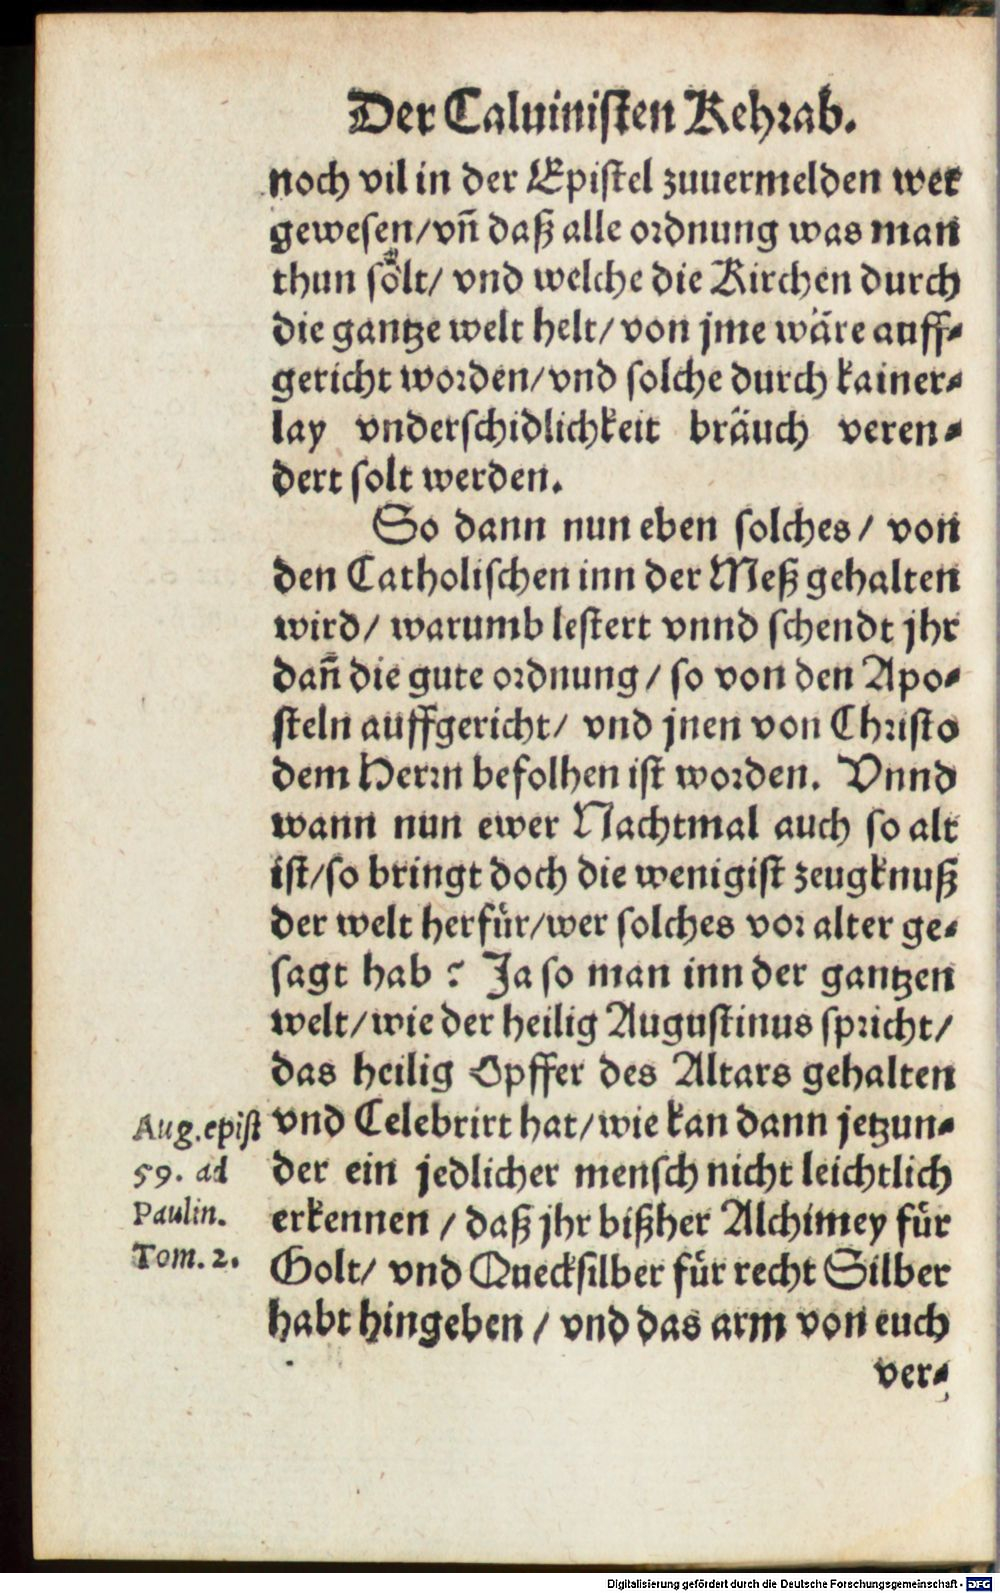 Der Caluinisten Kehrab.
noch vil in der Epistel zuuermelden wer
gewesen/vn̄ daß alle ordnung was man
thun sölt/ vnd welche die Kirchen durch
die gantze welt helt/ von jme wäre auff-
gericht worden/vnd solche durch kainer-
lay vnderschidlichkeit bräuch veren-
dert solt werden.
So dann nun eben solches/ von
den Catholischen inn der Meß gehalten
wird/ warumb lestert vnnd schendt jhr
dan̄ die gute ordnung/ so von den Apo-
steln auffgericht/ vnd jnen von Christo
dem Herrn befolhen ist worden. Vnnd
wann nun ewer Nachtmal auch so alt
ist/so bringt doch die wenigist zeugknuß
der welt herfür/wer solches vor alter ge-
sagt hab? Ja so man inn der gantzen
welt/wie der heilig Augustinus spricht/
das heilig Opffer des Altars gehalten
vnd Celebrirt hat/wie kan dann jetzun-
der ein jedlicher mensch nicht leichtlich
erkennen/ daß jhr bißher Alchimey für
Golt/ vnd Quecksilber für recht Silber
habt hingeben/ vnd das arm von euch
ver-
Aug. epist
59. ad
Paulin.
Tom. 2.
Digitalisierung gefördert durch die Deutsche Forschungsgemeinschaft - DFG